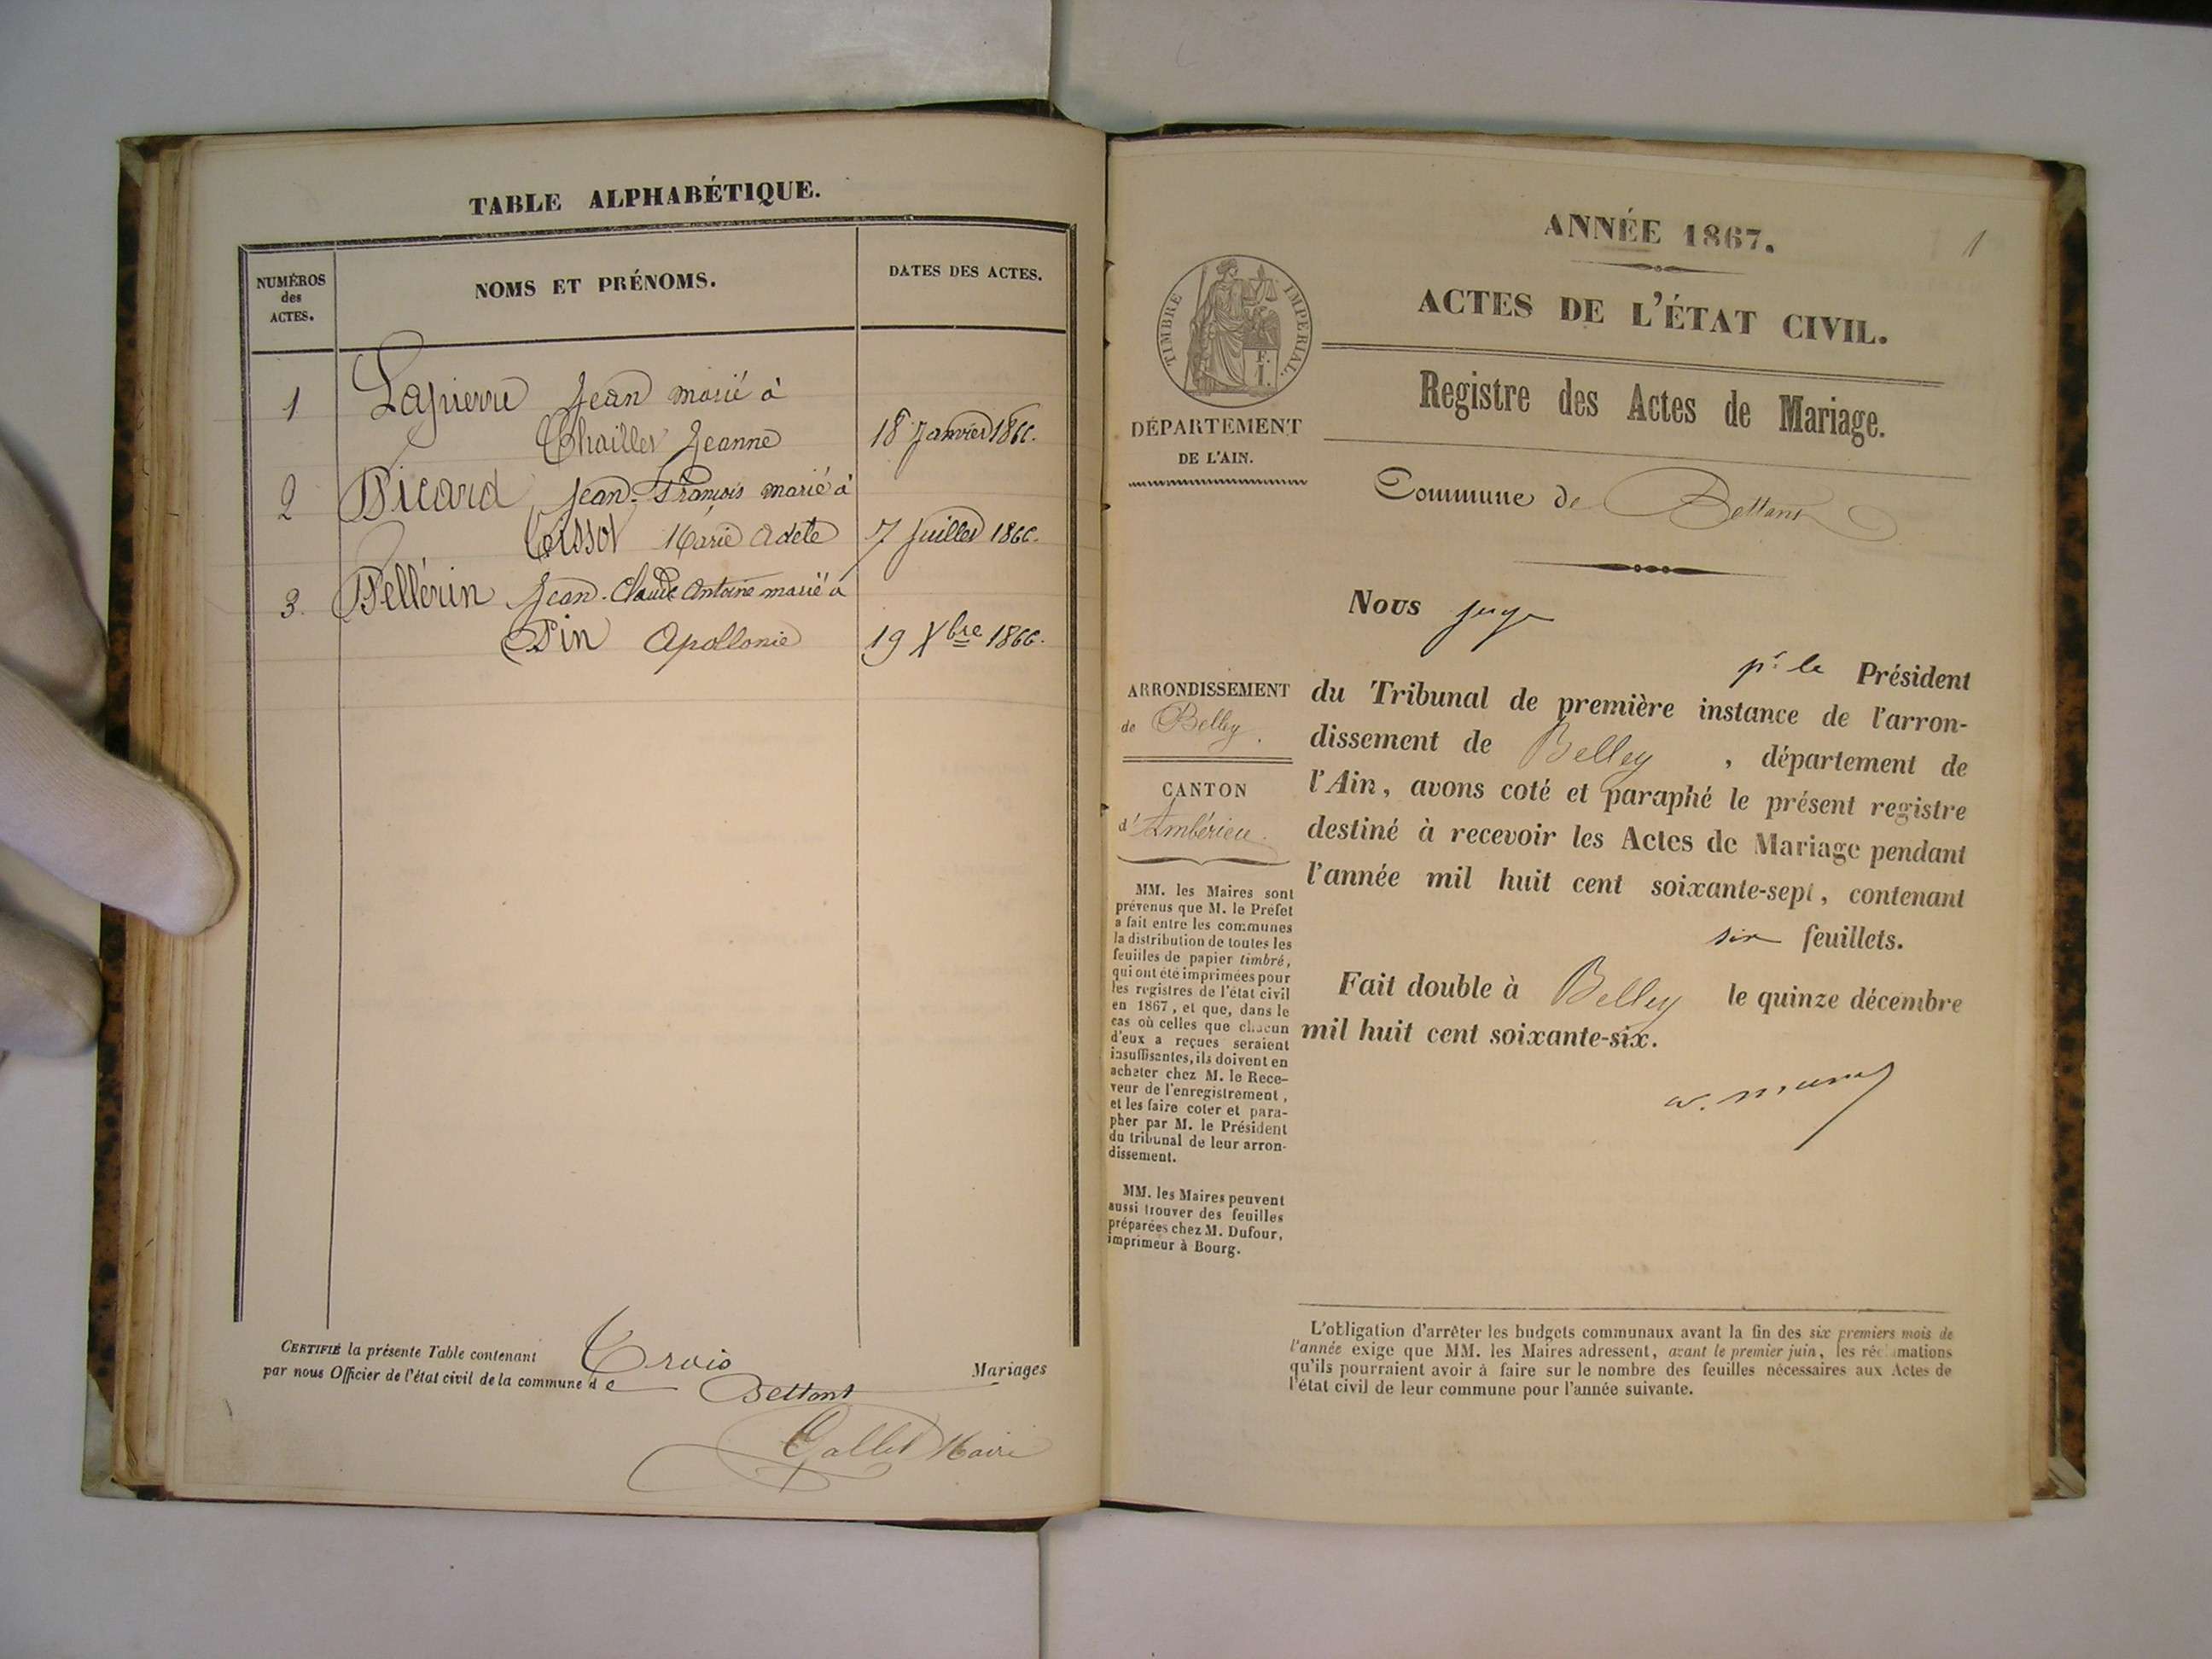 TABLE ALPHABÉTIQUE.
NUMÉROS
des
ACTES.
NOMS ET PRÉNOMS.
DATES DES ACTES.
1 Lapierre Jean marié à
Chaillet Jeanne 18 Janvier 1866.
2 Picard Jean-François marié à
Tissot Marie Adele 7 Juillet 1866.
3. Pellérin Jean-Claude Antoine marié à
Pin Apollonie 19 Xbre 1866.
CERTIFIÉ la présente Table contenant Trois Mariages
par nous Officier de l'état civil de la commune de Bettant
Gallet Maire
1
ANNÉE 1867.
ACTES DE L'ÉTAT CIVIL.
Registre des Actes de Mariage.
TIMBRE IMPERIAL.
F.
I.
DÉPARTEMENT
DE L'AIN.
Commune de Bettant
ARRONDISSEMENT
de Belley.
CANTON
d'Ambérieu.
MM. les Maires sont
prévenus que M. le Préfet
a fait entre les communes
la distribution de toutes les
feuilles de papier timbré,
qui ont été imprimées pour
les registres de l'état civil
en 1867, et que, dans le
cas où celles que chacun
d'eux a reçues seraient
insuffisantes, ils doivent en
acheter chez M. le Rece-
veur de l'enregistrement,
et les faire coter et para-
pher par M. le Président
du tribunal de leur arron-
dissement.
MM. les Maires peuvent
aussi trouver des feuilles
préparées chez M. Dufour,
imprimeur à Bourg.
Nous juge
pr le Président
du Tribunal de première instance de l'arron-
dissement de Belley , département de
l'Ain, avons coté et paraphé le présent registre
destiné à recevoir les Actes de Mariage pendant
l'année mil huit cent soixante-sept, contenant
six feuillets.
Fait double à Belley le quinze décembre
mil huit cent soixante-six.
L'obligation d'arrêter les budgets communaux avant la fin des six premiers mois de
l'année exige que MM. les Maires adressent, avant le premier juin, les réclamations
qu'ils pourraient avoir à faire sur le nombre des feuilles nécessaires aux Actes de
l'état civil de leur commune pour l'année suivante.